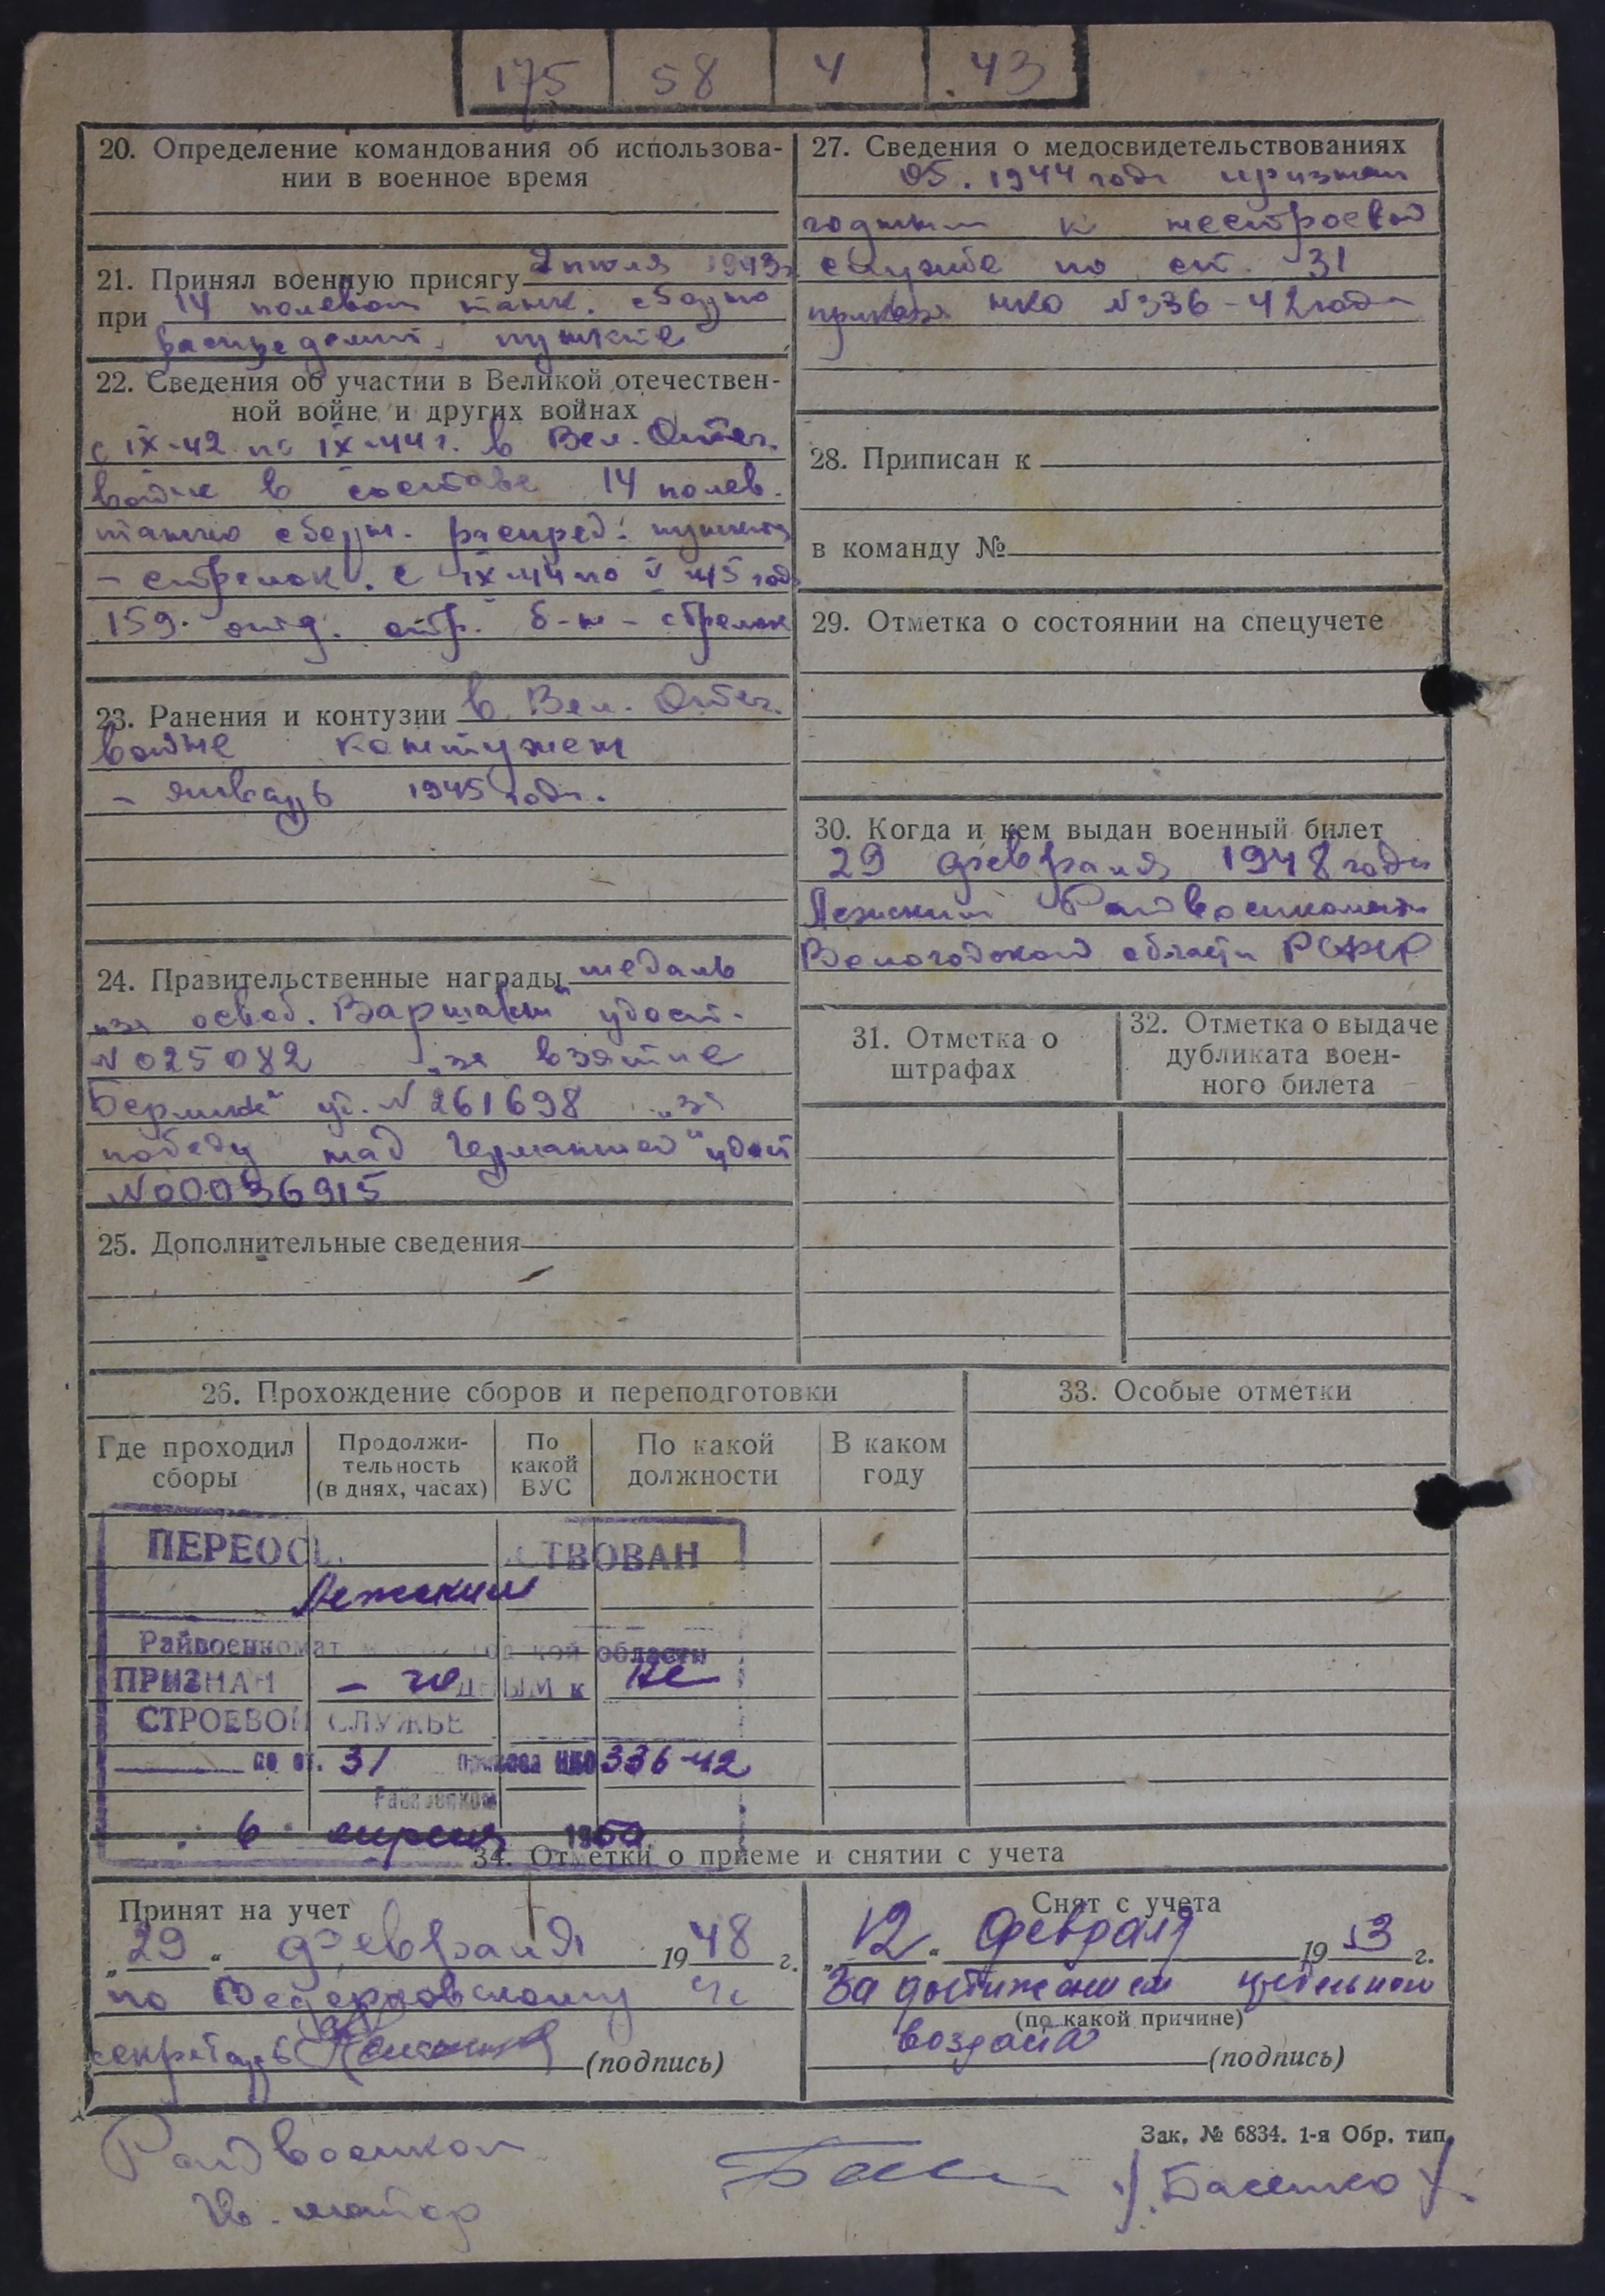 175 58 4 43
20. Определение командования об использова-
нии в военное время
21. Принял военную присягу июля 1943г
при 14 полевом танк. сборно
распределит. пункте
22. Сведения об участии в Великой отечествен-
ной войне и других войнах
с IX-42 по IX-44 г. в Вел. Отеч.
войне в составе 14 полев.
танко сборн. распред. пункта
- стрелок. с IX-44 по V-45 год
159 отд. стр. б-н - стрелок
23. Ранения и контузии в Вел. Отеч.
войне контужен
- январь 1945 года.
24. Правительственные награды медаль
„за освоб. Варшавы" удост.
N 025082 „за взятие
Берлина" уд. N 261698 „за
победу над Германией" удост
N 00036915
25. Дополнительные сведения
27. Сведения о медосвидетельствованиях
05. 1944 года признан
годным к нестроевой
службе по ст. 31
приказа НКО N 336-42 года
28. Приписан к
в команду №
29. Отметка о состоянии на спецучете
30. Когда и кем выдан военный билет
29 февраля 1948 года
Лежским Райвоенкоматом
Вологодской области РСФСР
31. Отметка о
штрафах
32. Отметка о выдаче
дубликата воен-
ного билета
26. Прохождение сборов и переподготовки
Где проходил
сборы
Продолжи-
тельность
(в днях, часах)
По
какой
ВУС
По какой
должности
В каком
году
33. Особые отметки
ПЕРЕОС СТВОВАН
Лежским
Райвоенкомат кой области
ПРИЗНАН - годным к не
СТРОЕВОЙ СЛУЖБЕ
по ст. 31 приказа НКО 336-42
Райвоенком
6 апреля 1950
34. Отметки о приеме и снятии с учета
Принят на учет
„29" февраля 1948 г.
по
секретарь (подпись)
Снят с учета
„12" февраля 1953 г.
За достижением предельного
(по какой причине)
возраста (подпись)
Зак. № 6834. 1-я Обр. тип.
Райвоенком
гв. майор /Басенко/.